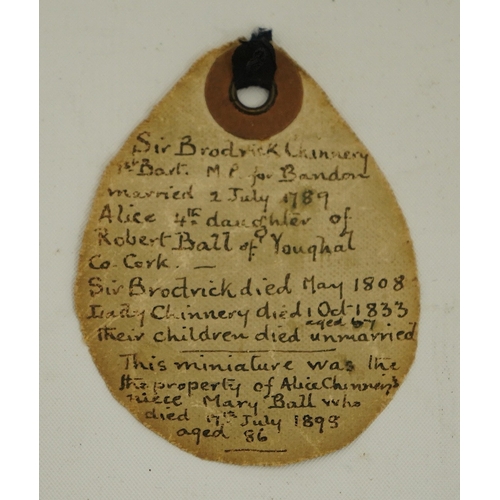 Sir Brodrick Chinnery
1st Bart. M P. for Bandon
married 2 July 1789
Alice 4th daughter of
Robert Ball of Youghal
Co. Cork. —
Sir Brodrick died May 1808
Lady Chinnery died 1 Oct 1833
aged 67
their children died unmarried
This miniature was the
the property of Alice Chinnery's
niece Mary Ball who
died 17th July 1899
aged 86